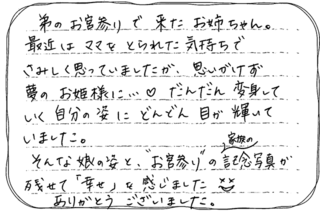 弟のお宮参りで来たお姉ちゃん。
最近はママをとられた気持ちで
さみしく思っていましたが、思いがけず
夢のお姫様に…♡ だんだん変身して
いく自分の姿にどんどん目が輝いて
いました。
そんな娘の姿と、"お宮参り"の家族の記念写真が
残せて「幸せ」を感じました
ありがとうございました。